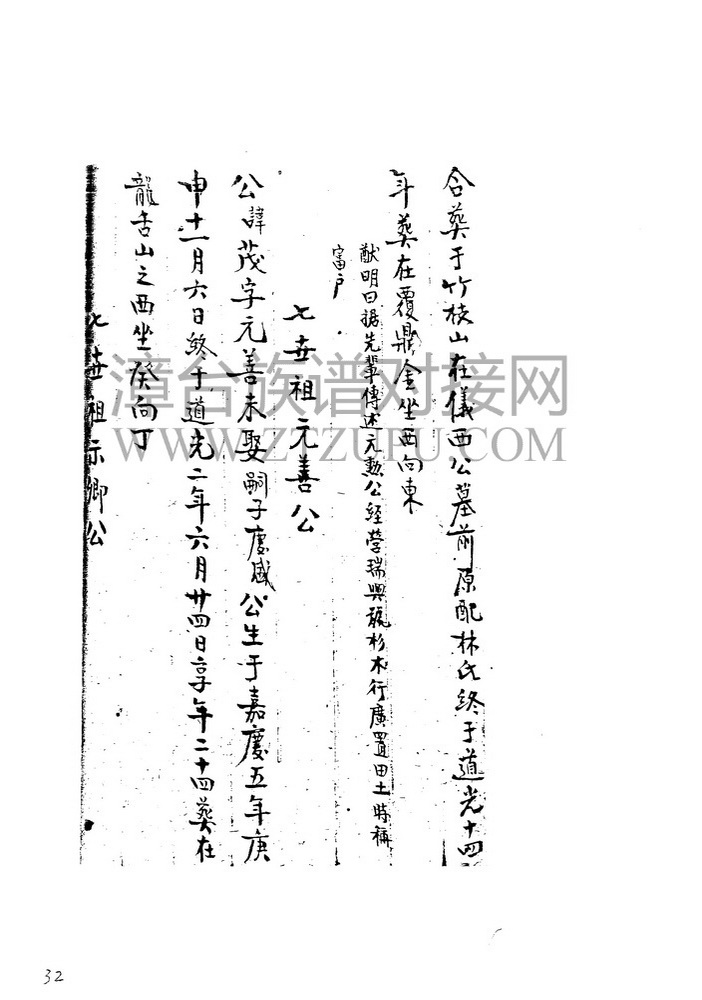 合葬于竹枝山在儀西公墓前原配林氏終于道光十四
年葬在覆鼎金坐西向東
猷明曰据先輩傳述元勲公經營瑞興號杉木行廣置田土時稱
富户.
七世祖元善公
公諱茂字元善未娶嗣子慶盛公生于嘉慶五年庚
申十一月六日終于道光二年六月廿四日享年二十四葬在
龍舌山之西坐癸向丁
七世祖示卿公
漳台族谱对接网
WWW.ZTZUPU.COM
32